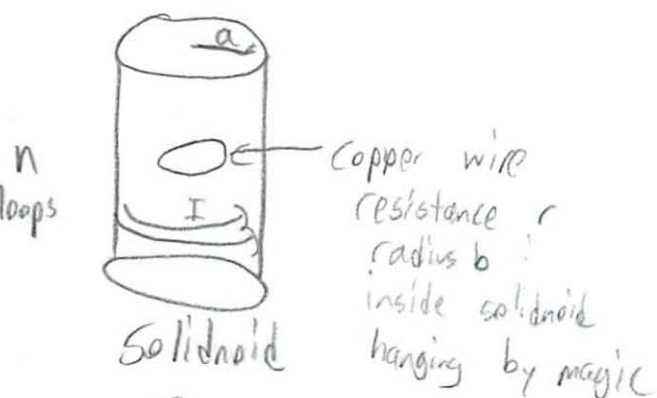 a
n
loops
I
Copper wire
resistance r
radius b
inside solidnoid
hanging by magic
Solidnoid